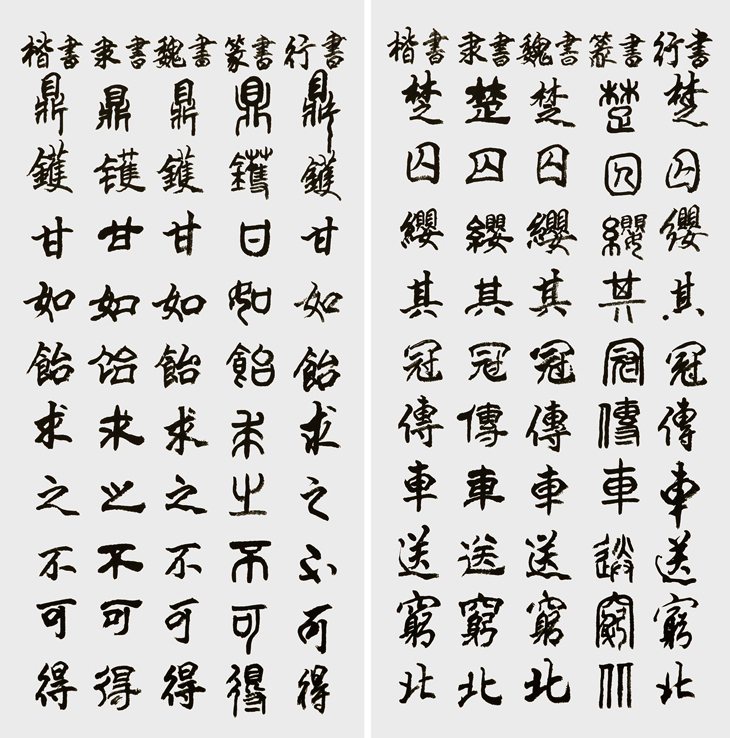 行書楚囚纓其冠傳車送窮北
篆書楚囚纓其冠傳車送窮北
魏書楚囚纓其冠傳車送窮北
隶書楚囚纓其冠傳車送窮北
楷書楚囚纓其冠傳車送窮北
行書鼎鑊甘如飴求之不可得
篆書鼎鑊甘如飴求之不可得
魏書鼎鑊甘如飴求之不可得
隶書鼎鑊甘如飴求之不可得
楷書鼎鑊甘如飴求之不可得